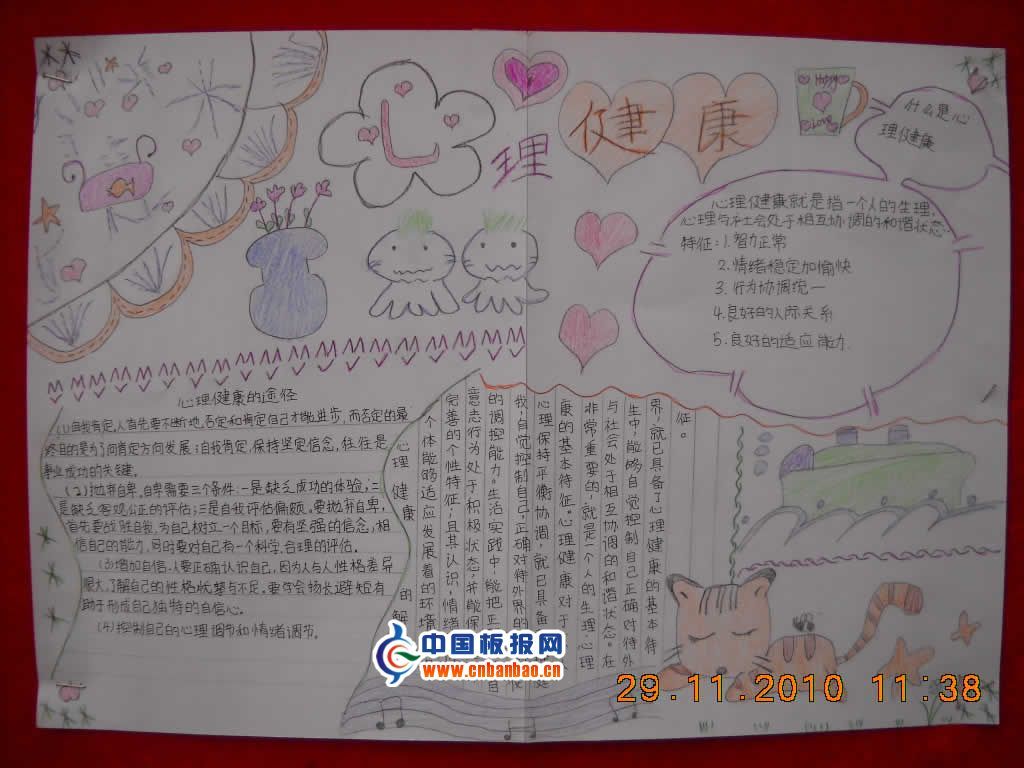 心理健康
Happy
Love
什么是心
理健康
心理健康就是指一个人的生理、
心理与社会处于相互协调的和谐状态
特征:1.智力正常
2.情绪稳定加愉快
3.行为协调统一
4.良好的人际关系
5.良好的适应能力.
心理健康的途径
(1)自我肯定,人首先要不断地否定和肯定自己才能进步,而否定的最
终目的是为了向肯定方向发展;自我肯定,保持坚定信念,往往是
事业成功的关键。
(2)抛弃自卑。自卑需要三个条件:一是缺乏成功的体验,二
是缺乏客观公正的评估;三是自我评估偏颇。要抛弃自卑,
首先要战胜自我,为自己树立一个目标,要有坚强的信念,相
信自己的能力,同时要对自己有一个科学、合理的评估。
(3)增加自信。人要正确认识自己,因为人与人性格差异
很大,了解自己的性格优势与不足。要学会扬长避短有
助于形成自己独特的自信心。
(4)控制自己的心理调节和情绪调节。
心理健康的解
个体能够适应发展着的环境
完善的个性特征;且其认识,情绪
意志行为处于积极状态,并能保
的调控能力。生活实践中,能把正
我,自觉控制自己,正确对待外界的
心理保持平衡协调,就已具备
康的基本特征。心理健康对于
非常重要的,就是一个人的生理、心理
与社会处于相互协调的和谐状态。在
生中,能够自觉控制自己正确对待外
界,就已具备了心理健康的基本特
征。
中国板报网
www.cnbanbao.cn
29.11.2010 11:38